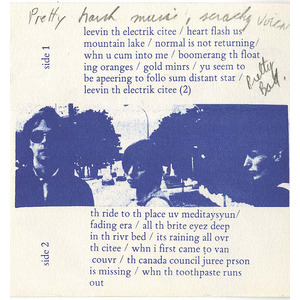 Pretty harsh music, scrachy voices
side 1
leevin th electrik citee / heart flash us
mountain lake / normal is not returning/
whn u cum into me / boomerang th float
ing oranges / gold minrs / yu seem to
be apeering to follo sum distant star /
leevin th electrik citee (2)
Pretty
Bad.
side 2
th ride to th place uv meditaysyun/
fading era / all th brite eyez deep
in th rivr bed / its raining all ovr
th citee / whn i first came to van
couvr / th canada council juree prson
is missing / whn th toothpaste runs
out